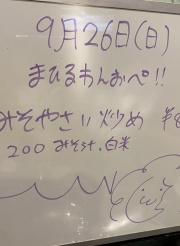 9月26日(日)
まひるわんおぺ!!
みそやさい炒め ¥8
200 みそ汁、白米